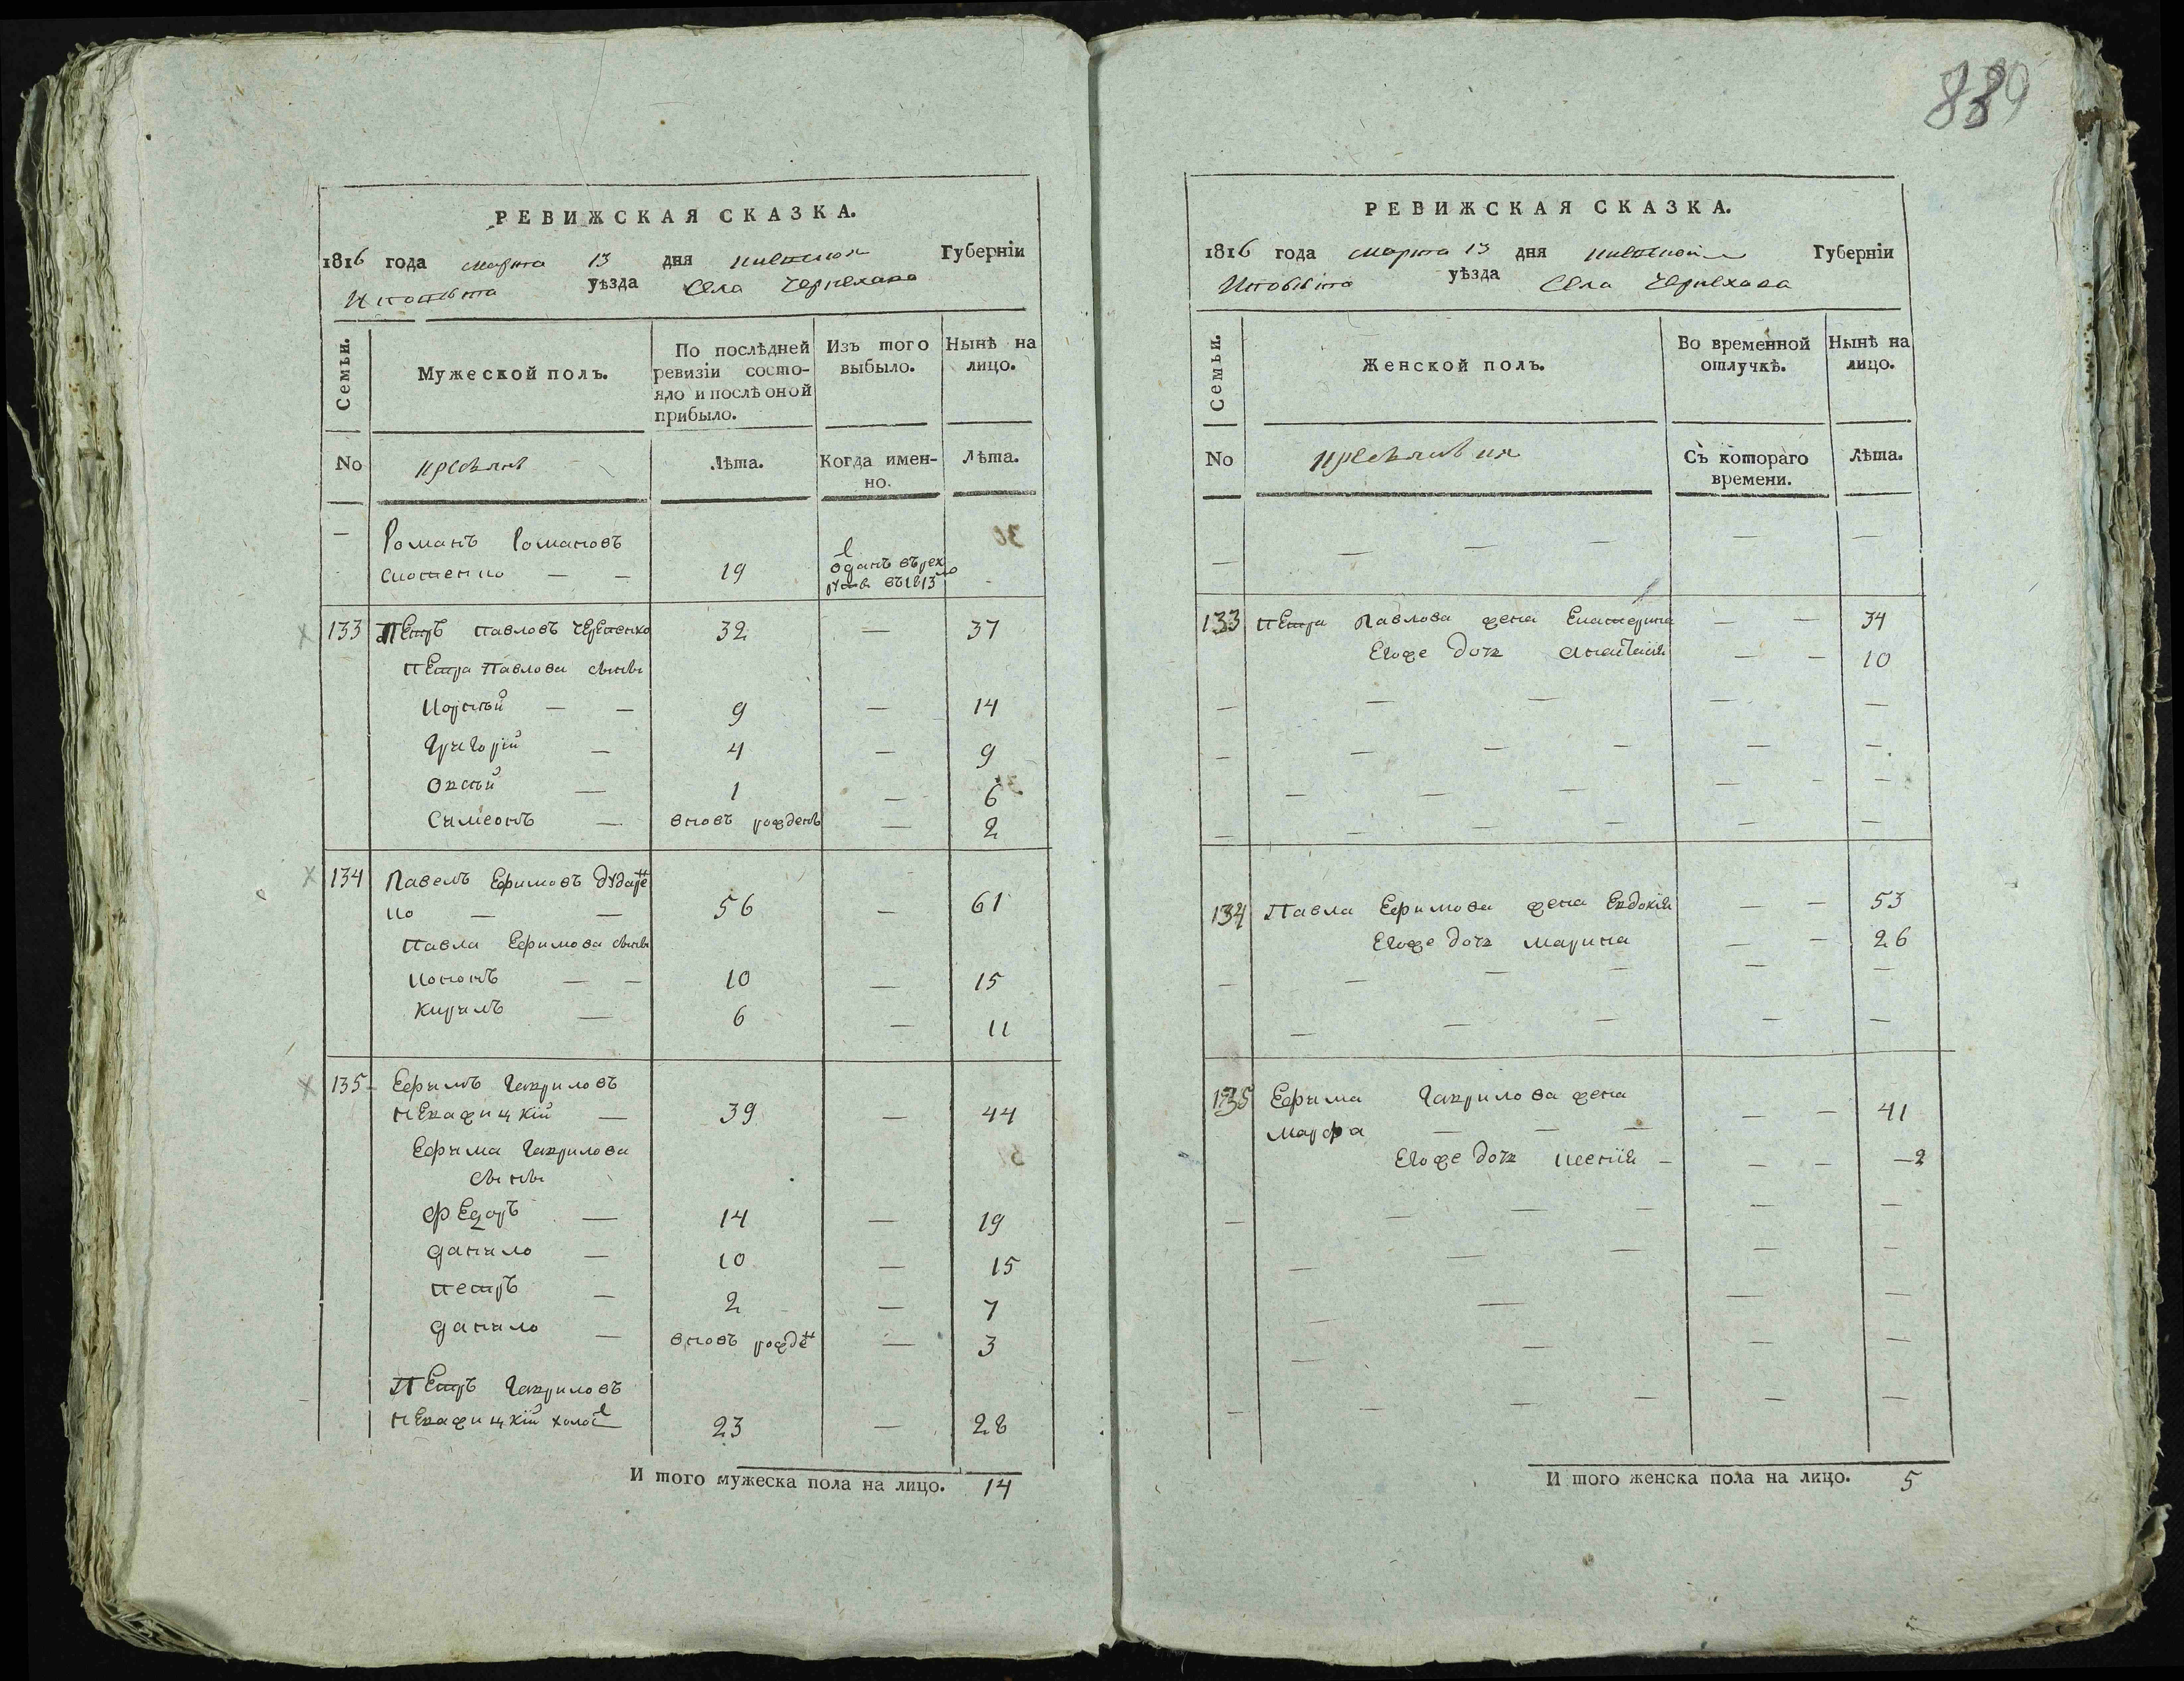 889
РЕВИЖСКАЯ СКАЗКА.
1816 года марта 13 дня киевской Губерніи
уѣзда Села Черняхова
Семьи.
Мужеской полъ.
По послѣдней
ревизіи состо-
яло и послѣ оной
прибыло.
Изъ того
выбыло.
Нынѣ на
лицо.
No
Лѣта.
Когда имен-
но.
Лѣта.
— Романъ Романовъ
— — 19 отданъ въ рек
руты въ 1813 го
133 Петръ Павловъ Черепенко 32 — 37
Петра Павлова сыны
Корней — — 9 — 14
Григорій — 4 — 9
1 — 6
Симеонъ — вновъ рожденъ — 2
134 Павелъ Ефимовъ Дударен
ко — — 56 — 61
Павла Ефимова сыны
Кононъ — — 10 — 15
Кирилъ — 6 — 11
135 Ефимъ Гаврилов
ъ
— 39 — 44
Ефима Гаврилова
сыны
Федоръ — 14 — 19
Данило — 10 — 15
Петръ — 2 — 7
Данило — вновъ рожден — 3
Петръ Гавриловъ
холос 23 — 28
И того мужеска пола на лицо. 14
РЕВИЖСКАЯ СКАЗКА.
1816 года марта 13 дня киевской Губерніи
уѣзда Села Черняхова
Семьи.
Женской полъ.
Во временной
отлучкѣ.
Нынѣ на
лицо.
No
Съ котораго
времени.
Лѣта.
133 Петра Павлова жена Екатерина — — 34
Егоже дочь Анастасія — — 10
134 Павла Ефимова жена Евдокія — — 53
Егоже дочь Марина — — 26
135 Ефима Гаврилова жена
Марфа — — — — — 41
Егоже дочь Ксенія — — — 2
И того женска пола на лицо. 5